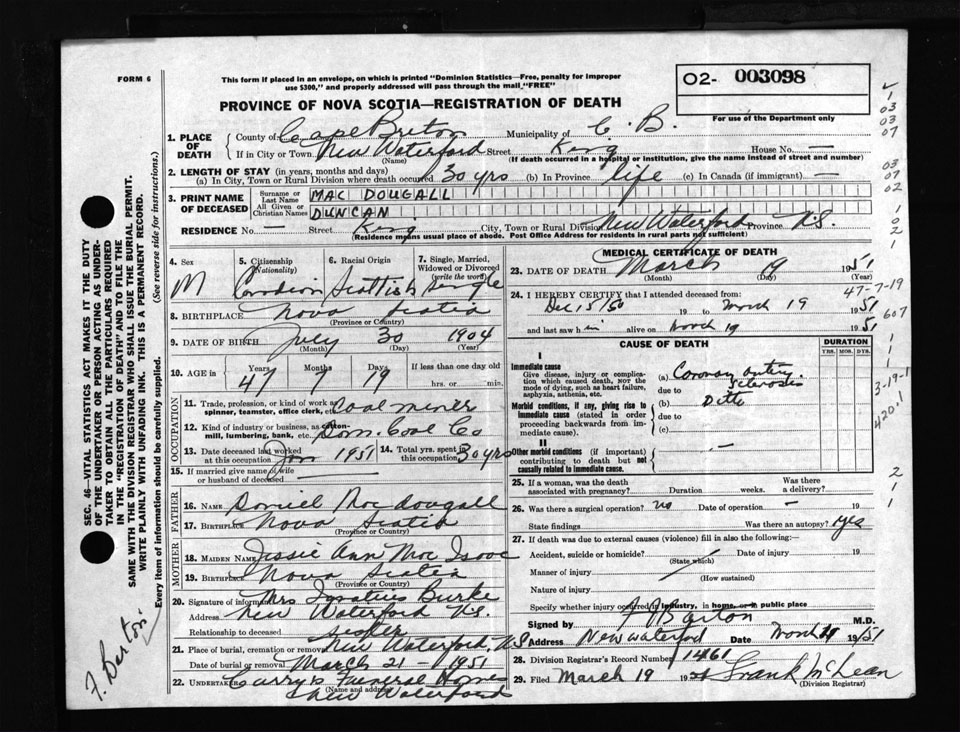 FORM 6
This form if placed in an envelope, on which is printed "Dominion Statistics—Free, penalty for improper
use $300," and properly addressed will pass through the mail "FREE"
O2- 003098
PROVINCE OF NOVA SCOTIA—REGISTRATION OF DEATH
For use of the Department only
1. PLACE OF DEATH County of Cape Breton Municipality of C. B.
If in City or Town New Waterford Street King House No. —
(Name) (If death occurred in a hospital or institution, give the name instead of street and number)
2. LENGTH OF STAY (in years, months and days)
(a) In City, Town or Rural Division where death occurred 30 yrs (b) In Province life (c) In Canada (if immigrant) —
3. PRINT NAME OF DECEASED Surname or Last Name MAC DOUGALL
All Given or Christian Names DUNCAN
RESIDENCE No. — Street King City, Town or Rural Division New Waterford Province N.S.
(Residence means usual place of abode. Post Office Address for residents in rural parts not sufficient)
4. Sex M
5. Citizenship (Nationality) Canadian
6. Racial Origin Scottish
7. Single, Married, Widowed or Divorced (write the word) Single
8. BIRTHPLACE Nova Scotia
(Province or Country)
9. DATE OF BIRTH July 30 1904
(Month) (Day) (Year)
10. AGE in Years Months Days If less than one day old
47 7 19 hrs. or min.
OCCUPATION
11. Trade, profession, or kind of work as spinner, teamster, office clerk, etc. Coal miner
12. Kind of industry or business, as cotton-mill, lumbering, bank, etc. Dom. Coal Co
13. Date deceased last worked at this occupation Jan 1951 14. Total yrs. spent in this occupation 30 yrs
15. If married give name of wife or husband of deceased —
FATHER
16. NAME Daniel MacDougall
17. BIRTHPLACE Nova Scotia
(Province or Country)
MOTHER
18. MAIDEN NAME Jessie Ann MacIsaac
19. BIRTHPLACE Nova Scotia
(Province or Country)
20. Signature of informant Mrs Ignatius Burke
Address New Waterford N.S.
Relationship to deceased sister
21. Place of burial, cremation or removal New Waterford, N.S
Date of burial or removal March 21 - 1951
22. UNDERTAKER Curry's Funeral Home
(Name and address) New Waterford
MEDICAL CERTIFICATE OF DEATH
23. DATE OF DEATH March 19 1951
(Month) (Day) (Year)
24. I HEREBY CERTIFY that I attended deceased from:
Dec 15/50 19 to March 19 1951
and last saw h im alive on March 19 1951
CAUSE OF DEATH
DURATION
YRS. MOS. DYS.
I
Immediate cause
Give disease, injury or complication which caused death, not the mode of dying, such as heart failure, asphyxia, asthenia, etc.
(a) Coronary artery sclerosis
due to
(b) Ditto
Morbid conditions, if any, giving rise to immediate cause (stated in order proceeding backwards from immediate cause).
due to
(c)
II
Other morbid conditions (if important) contributing to death but not causally related to immediate cause. —
25. If a woman, was the death associated with pregnancy? Duration weeks. Was there a delivery?
26. Was there a surgical operation? no Date of operation — 19
State findings Was there an autopsy? yes
27. If death was due to external causes (violence) fill in also the following:—
Accident, suicide or homicide? Date of injury 19
(State which)
Manner of injury
(How sustained)
Nature of injury
Specify whether injury occurred in industry, in home, or in public place
Signed by Barton M.D.
Address New Waterford Date March 19 1951
28. Division Registrar's Record Number 1461
29. Filed March 19 19 51 Frank McLean
(Division Registrar)
SEC. 46—VITAL STATISTICS ACT MAKES IT THE DUTY
OF THE UNDERTAKER OR PERSON ACTING AS UNDER-
TAKER TO OBTAIN ALL THE PARTICULARS REQUIRED
IN THE "REGISTRATION OF DEATH" AND TO FILE THE
SAME WITH THE DIVISION REGISTRAR WHO SHALL ISSUE THE BURIAL PERMIT.
WRITE PLAINLY WITH UNFADING INK. THIS IS A PERMANENT RECORD.
Every item of information should be carefully supplied. (See reverse side for instructions.)
F. Barton
1
03
03
07
03
07
02
1
0
2
1
47-7-19
607
1
1
1
3-19-1
420.1
2
1
1